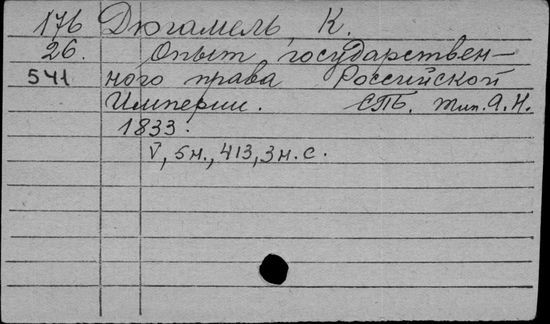 176 Дюгамель, К.
26. Опыт государствен-
541 ного права Российской
Империи. СПБ. тип. А.Н.
1833.
V, 5н., 413, 3н. с.